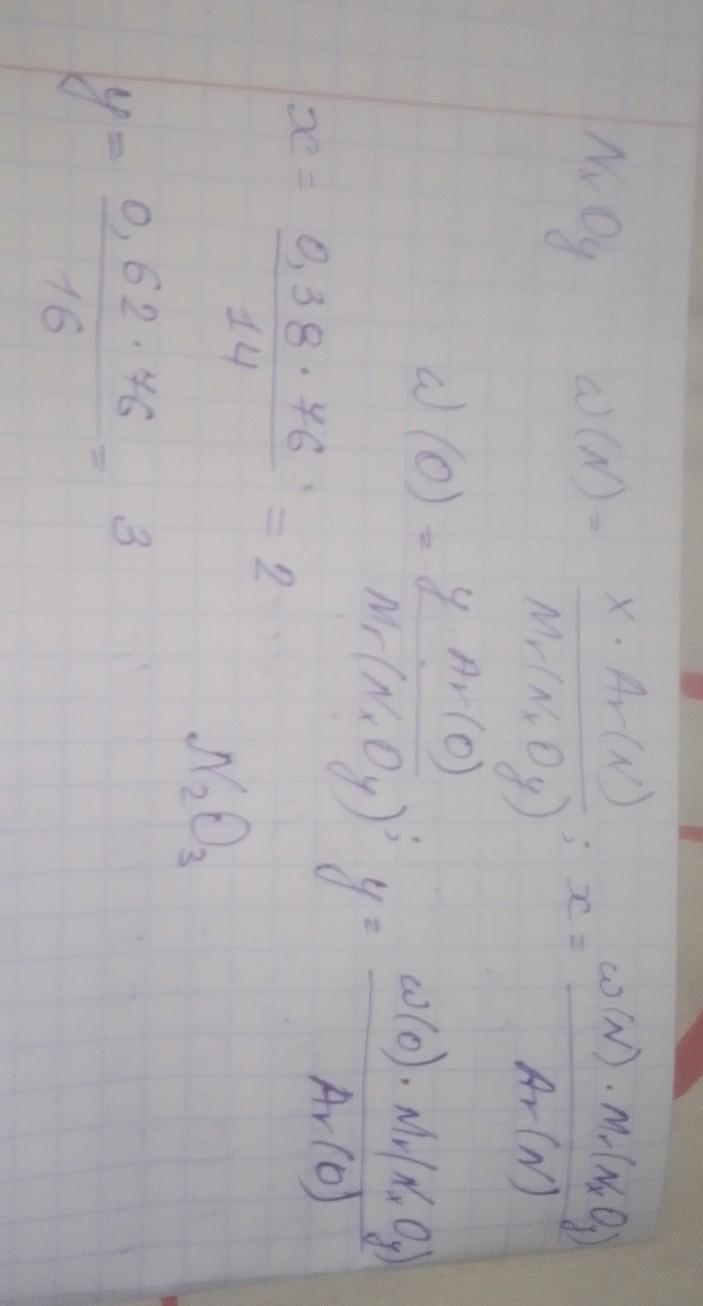 NxOy ω(N) = x · Ar(N) / Mr(NxOy) ; x = ω(N) · Mr(NxOy) / Ar(N)
ω(O) = y · Ar(O) / Mr(NxOy) ; y = ω(O) · Mr(NxOy) / Ar(O)
x = 0,38 · 76 / 14 = 2
N₂O₃
y = 0,62 · 76 / 16 = 3